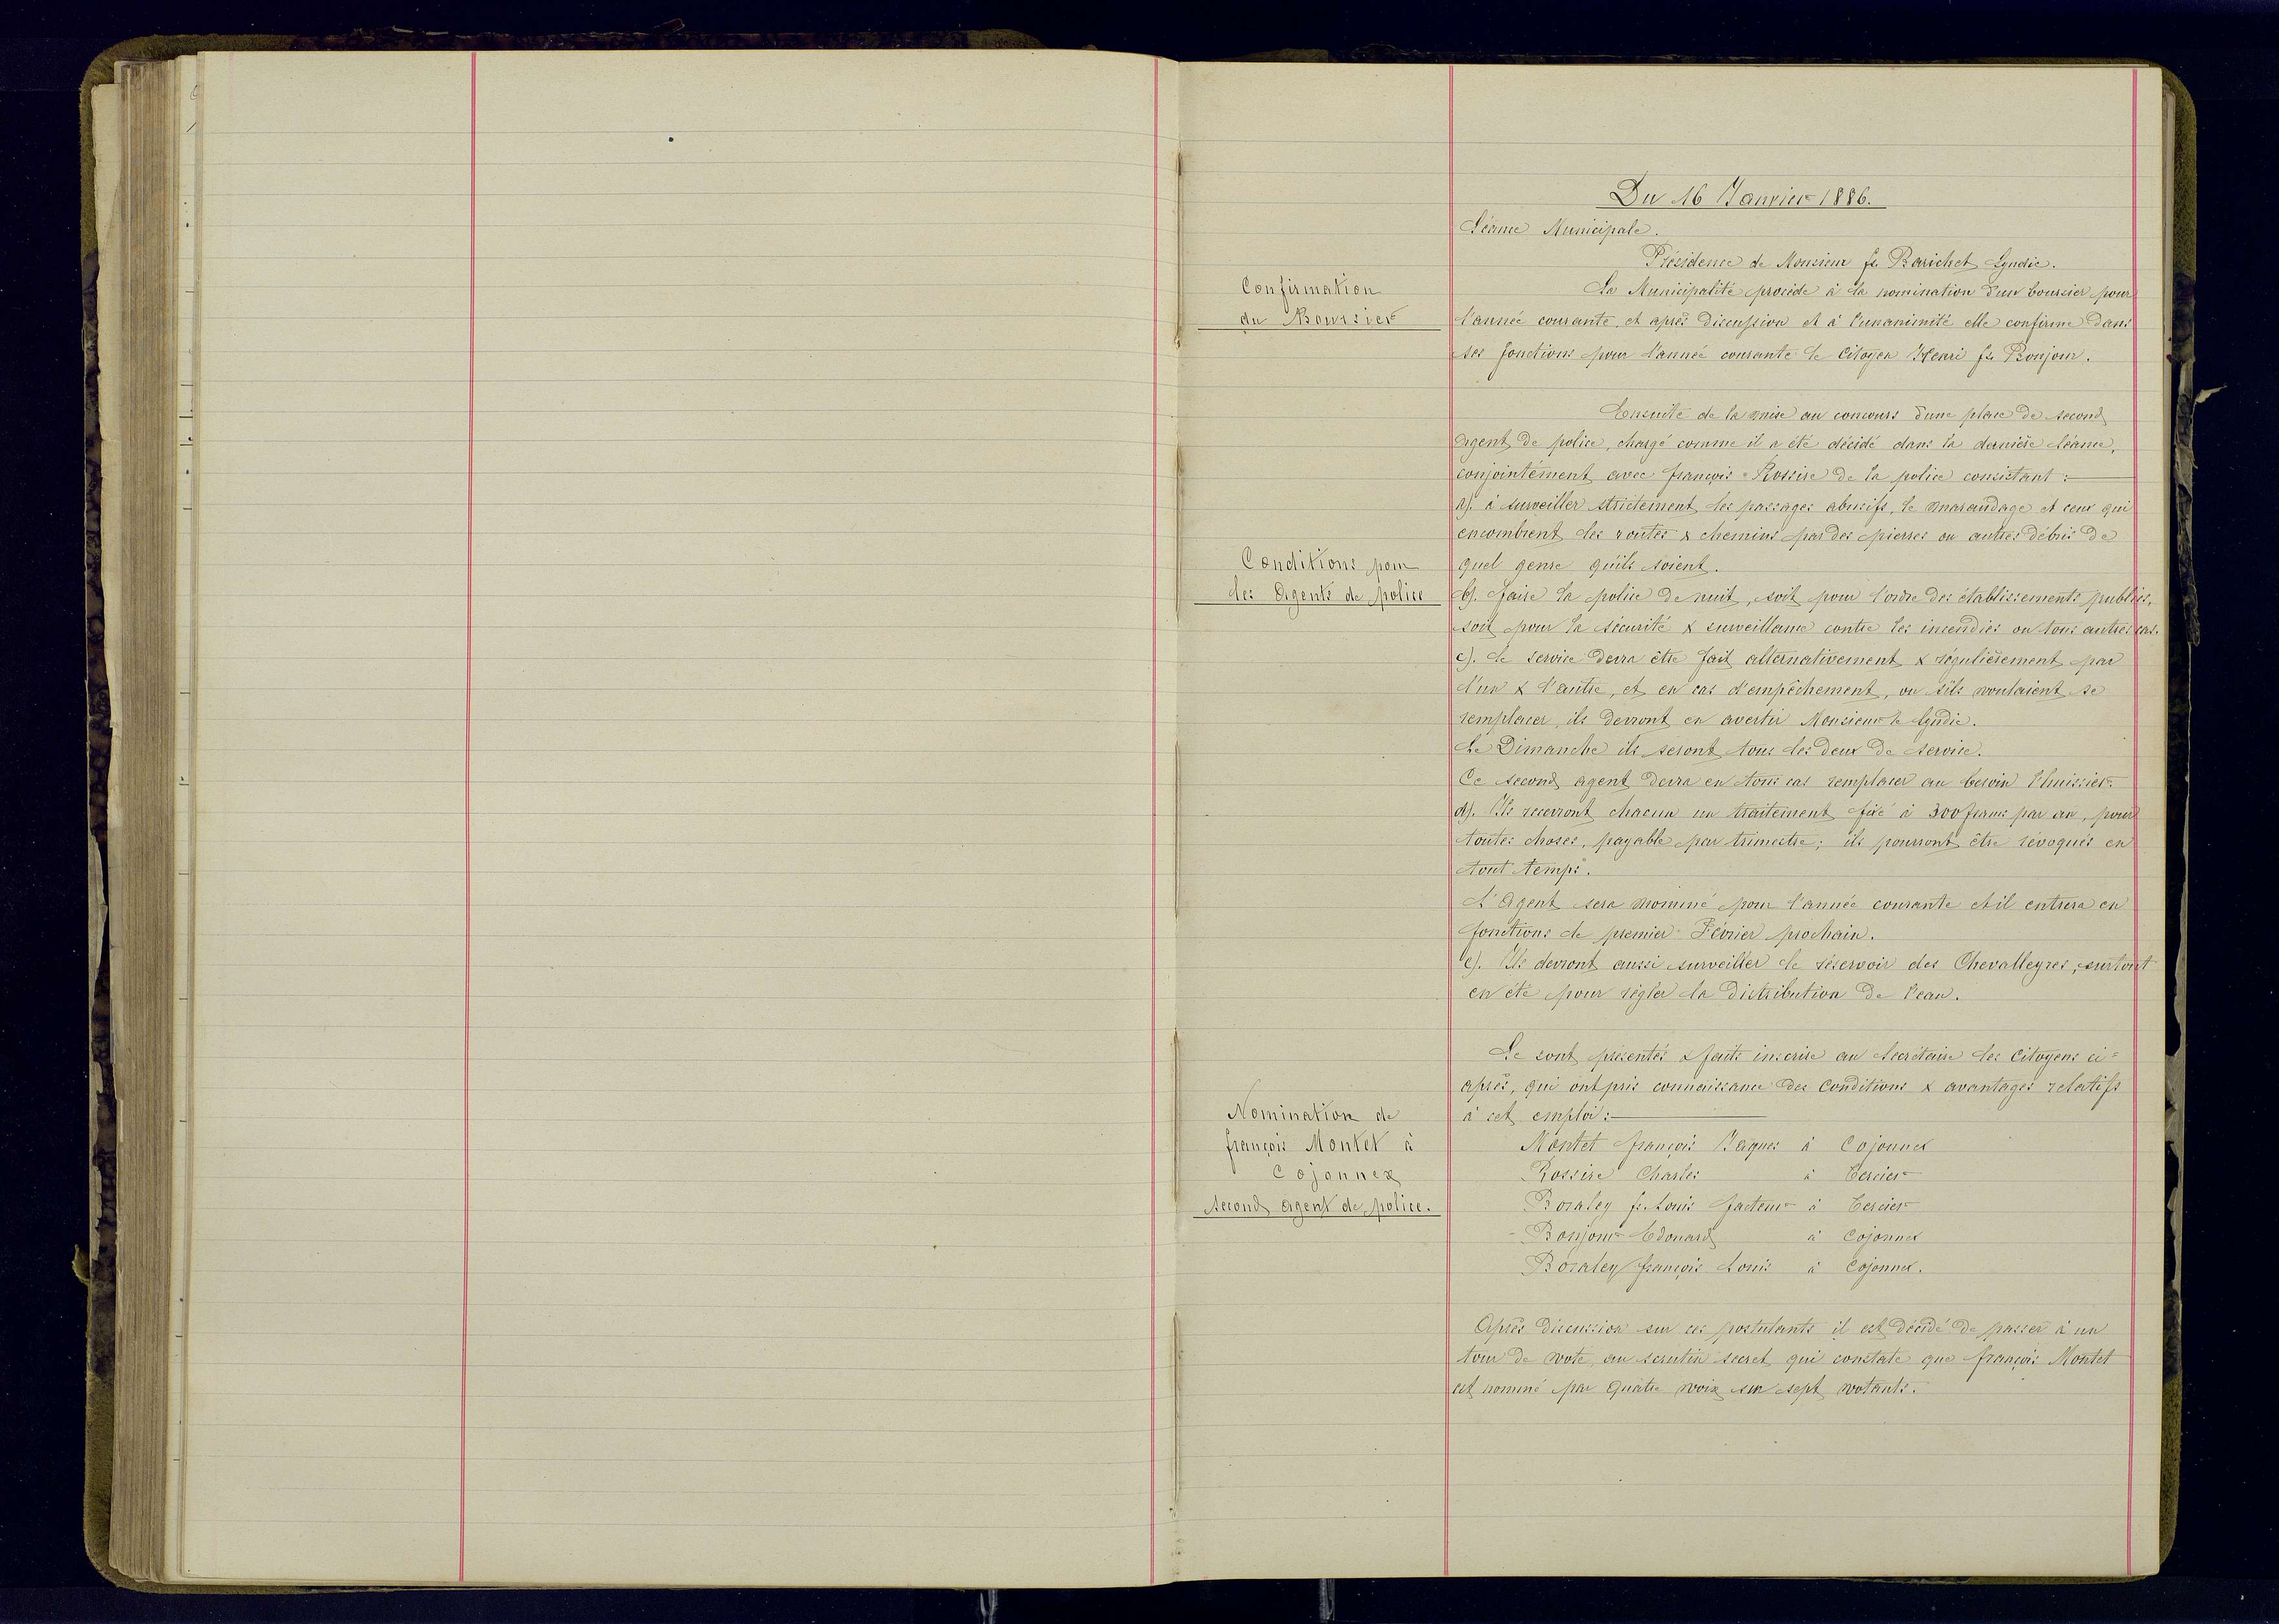 Du 16 Janvier 1886.
Séance Municipale.
Présidence de Monsieur fs. Barichet Syndic.
Confirmation
du Boursier
La Municipalité procède à la nomination d'un boursier pour
l'année courante, et après discussion et à l'unanimité elle confirme dans
ses fonctions pour l'année courante le Citoyen Henri fs Bonjour.
Ensuite de la mise au concours d'une place de second
agent de police, chargé comme il a été décidé dans la dernière séance,
conjointement avec françois Rossire de la police consistant :
a). à surveiller strictement les passages abusifs, le maraudage et ceux qui
encombrent les routes & chemins par des pierres ou autres débris de
quel genre qu'ils soient.
Conditions pour
les Agents de police
b). faire la police de nuit, soit pour l'ordre des établissements publics,
soit pour la sécurité & surveillance contre les incendies ou tous autres cas.
c). Le service devra être fait alternativement & régulièrement par
l'un & l'autre, et en cas d'empêchement, ou s'ils voulaient se
remplacer, ils devront en avertir Monsieur le Syndic.
Le Dimanche ils seront tous les deux de service.
Ce second agent devra en tous cas remplacer au besoin l'huissier.
d). Ils recevront chacun un traitement fixé à 300 francs par an, pour
toutes choses, payable par trimestre; ils pourront être révoqués en
tout temps.
L'Agent sera nommé pour l'année courante et il entrera en
fonctions le premier Février prochain.
e). Ils devront aussi surveiller le réservoir des Chevalleyres, surtout
en été pour régler la distribution de l'eau.
Se sont présentés & faits inscrire au Secrétaire les Citoyens ci=
après, qui ont pris connaissance des Conditions & avantages relatifs
à cet emploi :
Nomination de
françois Montet à
Cojonnex
second agent de police.
Montet françois Jaques à Cojonnex
Rossire Charles à Tercier
fs. Louis facteur à Tercier
Bonjour Edouard à Cojonnex
françois Louis à Cojonnex.
Après discussion sur ces postulants il est décidé de passer à un
tour de vote, au scrutin secret qui constate que françois Montet
est nommé par quatre voix sur sept votants.